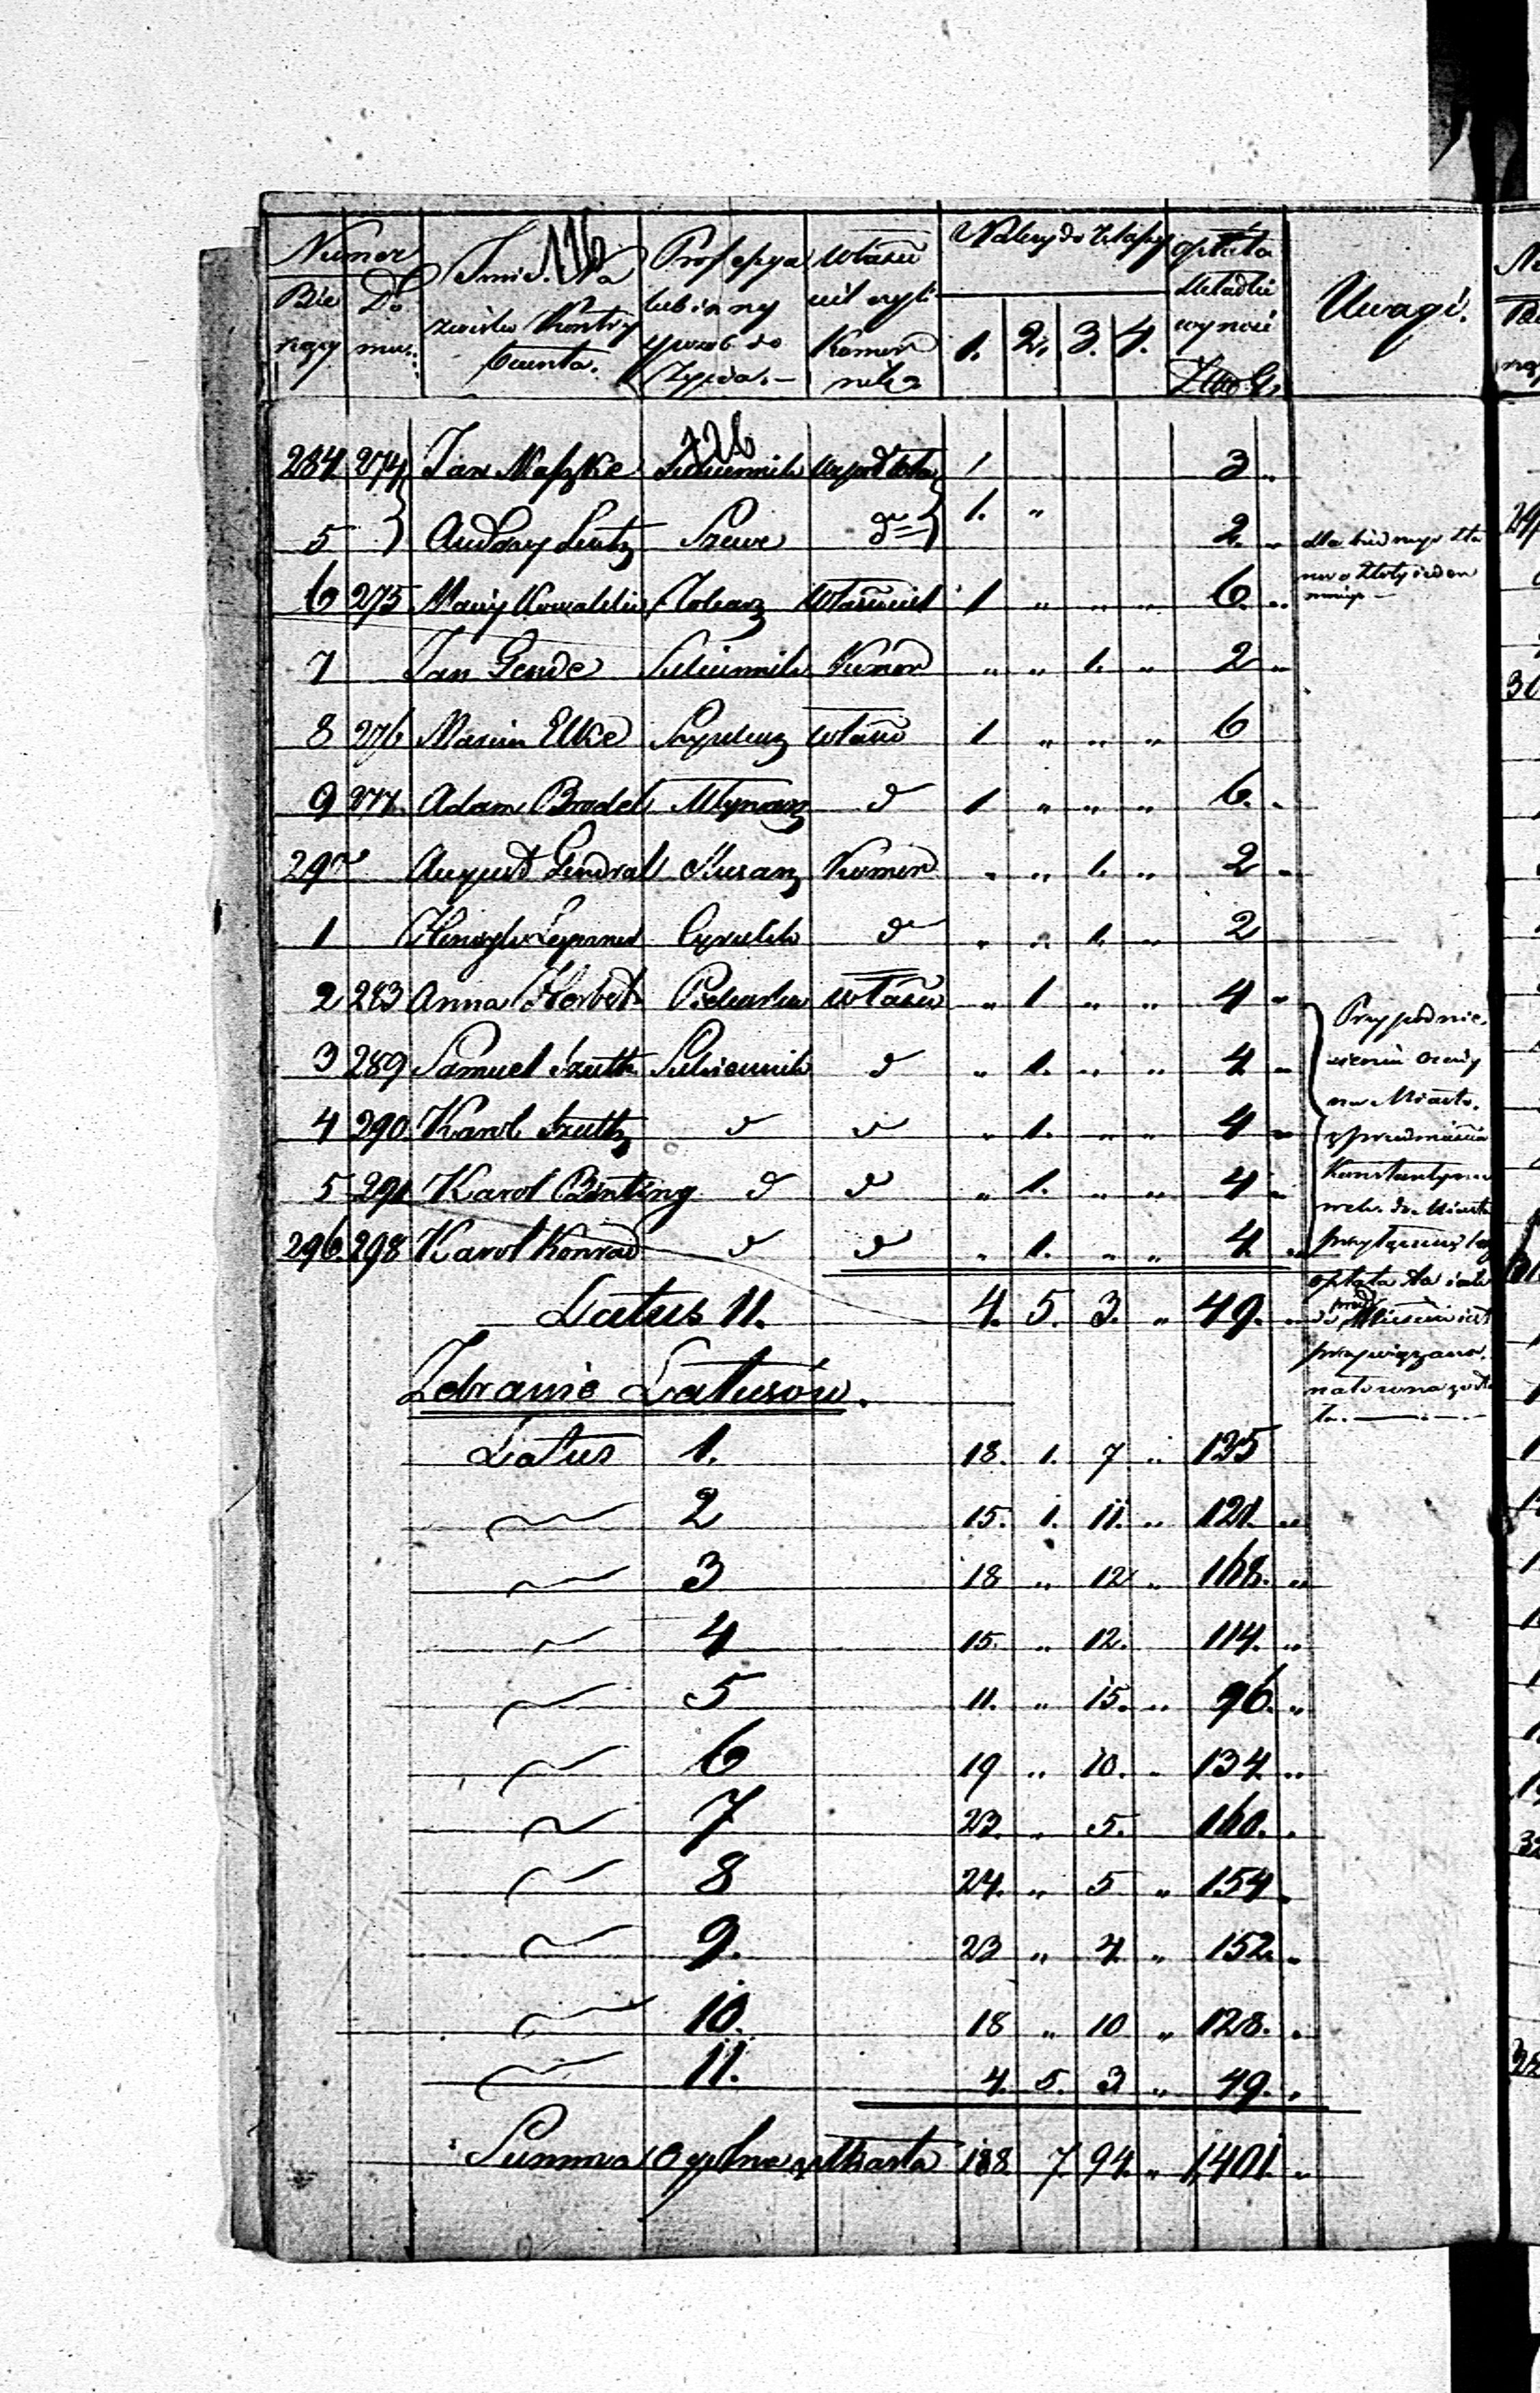 Numer Imie. Na Professya własci Należy do Klassy opłata Uwagi.
Bie Do zwisko Kontry lub inny ciel czyli składki
żący mu. buenta. sposób do Komor 1. 2. 3. 4. wynosi
życia.— nik Złto Gr
116
126
284 274 Jan Maszke Sukiennik współwła 1 3 „
5 Andrzej Lutz Szewc do 1. „ 2. „
6 275 Maciej Kowalski Stolarz Właściciel 1 „ „ „ 6. „
7 Jan Gende Sukiennik Komor „ „ 1. „ 2 „
8 276 Marcin Elke Szynkarz własc 1 „ „ „ 6
9 277. Adam Brodel Młynarz d 1 „ „ „ 6. „
290 August Gendrat Komor „ „ 1. „ 2 „
1 Cyrulik d „ „ 1. „ 2
2 283 Anna Herbst Piekarka własc „ 1. „ „ 4 „
3 289 Samuel Szultz Sukiennik d „ 1. „ „ 4 „
4 290 Karol Szultz d d „ 1. „ „ 4 „
5 291 Karol Binting d d „ 1. „ „ 4 „
296. 298 Karol Konrad d d „ 1. „ „ 4. „
Latus 11. 4. 5. 3. „ 49. „
dla biednego sta
nu o złoty jeden
mniej —
Przy podnie
sieniu
na Miasto.
z przedmieścia
Konstantyno
do Miasta
przyłączonej
opłata
przywiązana.
Zebranie Latusów.
Latus 1. 18. 1. 7 „ 125
2 15. 1. 11. „ 121. „
3 18 „ 12 „ 168. „
4 15. „ 12. 114. „
5 11. „ 15. „ 96. „
6 19 „ 10. „ 134 „
7 23. „ 5. 160. „
8 24. „ 5 „ 154 „
9. 23 „ 4 „ 152. „
10. 18 „ 10 „ 128. „
11. 4. 5. 3 „ 49. „
Summa Ogólna z Miasta 188 7 94. „ 1,401. „